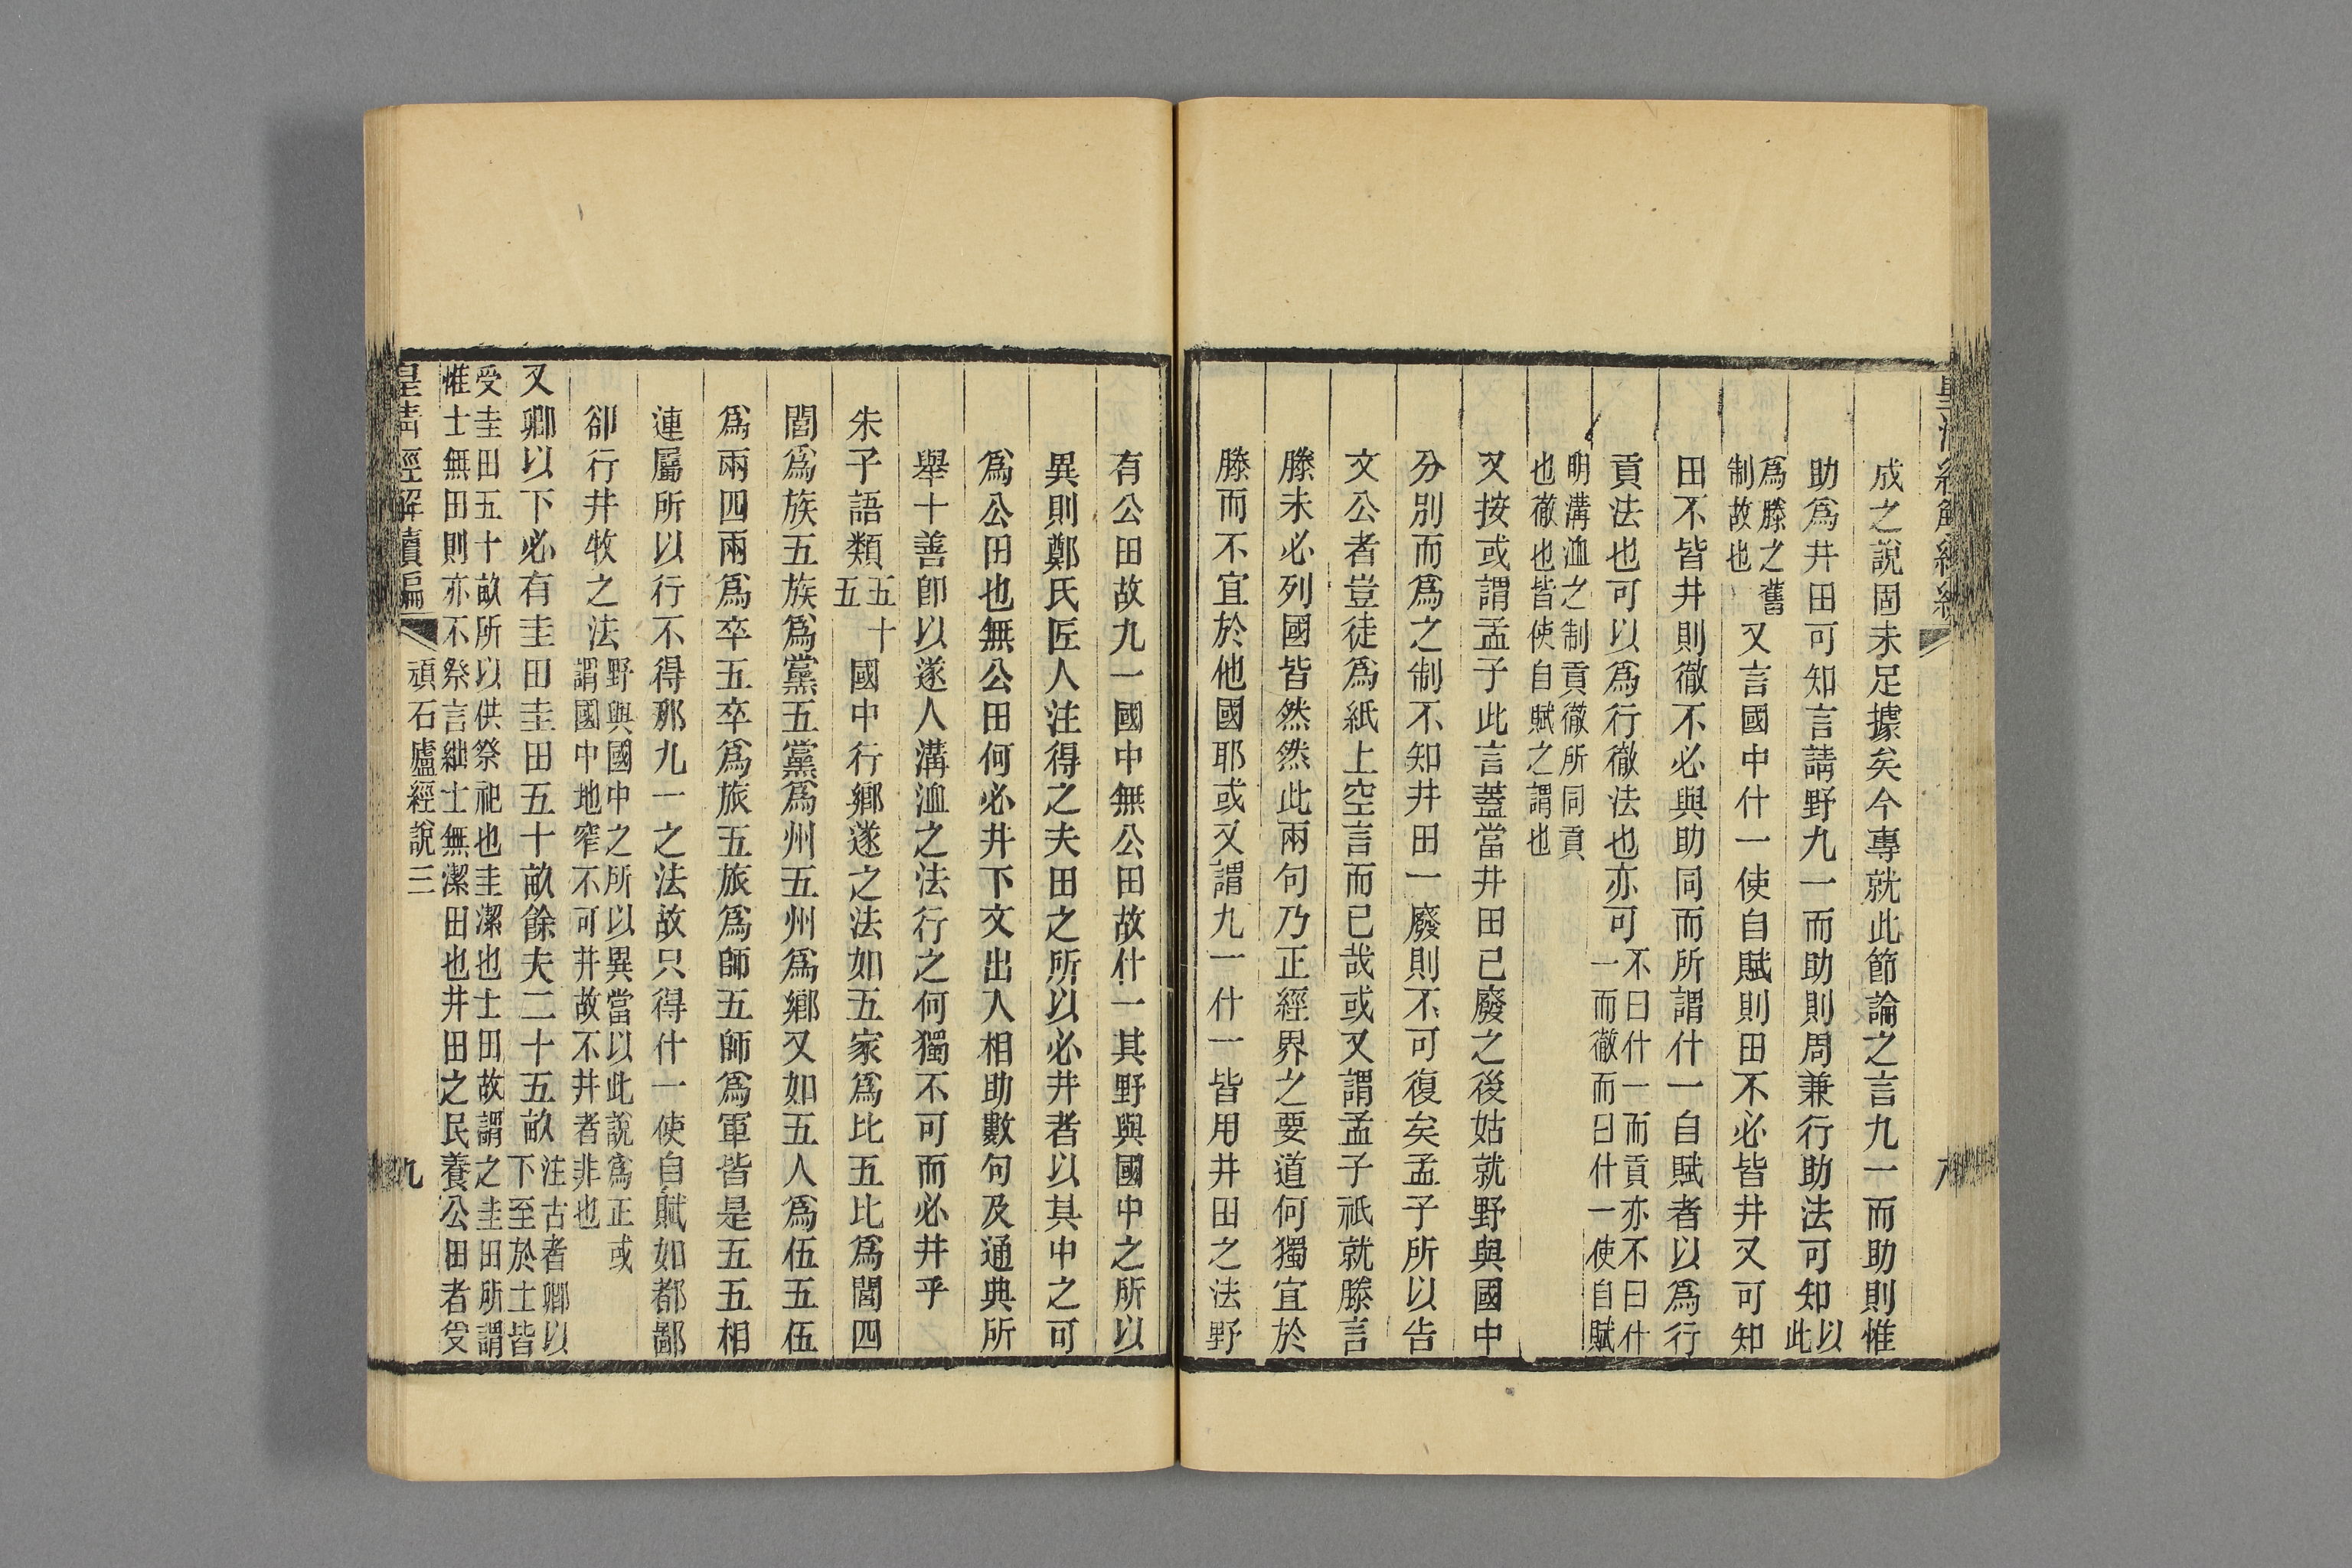 成之說固未足據矣今專就此節論之言九一而助則惟
助爲井田可知言請野九一而助則周兼行助法可知以此
爲滕之舊制故也又言國中什一使自賦則田不必皆井又可知
田不皆井則徹不必與助同而所謂什一自賦者以爲行
貢法也可以爲行徹法也亦可不曰什一而貢亦不曰什一而徹而曰什一使自賦
明溝洫之制貢徹所同貢也徹也皆使自賦之謂也
又按或謂孟子此言蓋當井田已廢之後姑就野與國中
分別而爲之制不知井田一廢則不可復矣孟子所以告
文公者豈徒爲紙上空言而已哉或又謂孟子祇就滕言
滕未必列國皆然然此兩句乃正經界之要道何獨宜於
滕而不宜於他國耶或又謂九一什一皆用井田之法野
有公田故九一國中無公田故什一其野與國中之所以
異則鄭氏匠人注得之夫田之所以必井者以其中之可
爲公田也無公田何必井下文出入相助數句及通典所
舉十善卽以遂人溝洫之法行之何獨不可而必井乎
朱子語類五十五國中行鄉遂之法如五家爲比五比爲閭四
閭爲族五族爲黨五黨爲州五州爲鄉又如五人爲伍五伍
爲兩四兩爲卒五卒爲旅五旅爲師五師爲軍皆是五五相
連屬所以行不得那九一之法故只得什一使自賦如都鄙
卻行井牧之法野與國中之所以異當以此說爲正或謂國中地窄不可井故不井者非也
又卿以下必有圭田圭田五十畝餘夫二十五畝注古者卿以下至於士皆
受圭田五十畝所以供祭祀也圭潔也士田故謂之圭田所謂
惟士無田則亦不祭言絀士無潔田也井田之民養公田者受
皇清經解續編 頑石廬經說三 九